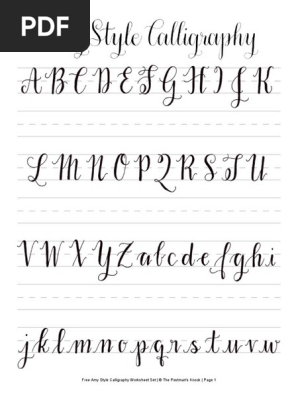 PDF
Style Calligraphy
A B C D E F G H I J K
L M N O P Q R S T U
V W X Y Z a b c d e f g h i
j k l m n o p q r s t u v w
Free Amy Style Calligraphy Worksheet Set | © The Postman's Knock | Page 1